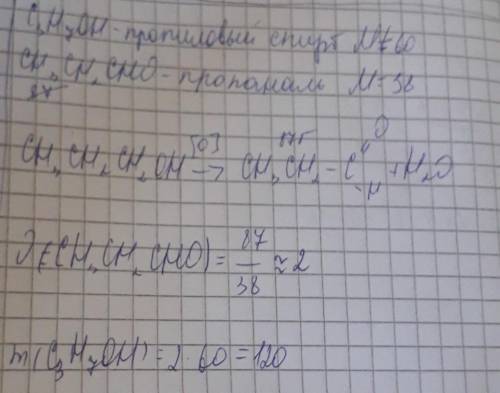 C₃H₇OH - пропиловый спирт M=60
CH₃CH₂CHO - пропаналь M=38
87г
[O] 87г O
CH₃CH₂CH₂OH → CH₃CH₂ - C + H₂O
H
(CH₃CH₂CHO) = 87/38 ≈ 2
m(C₃H₇OH) = 2·60 = 120